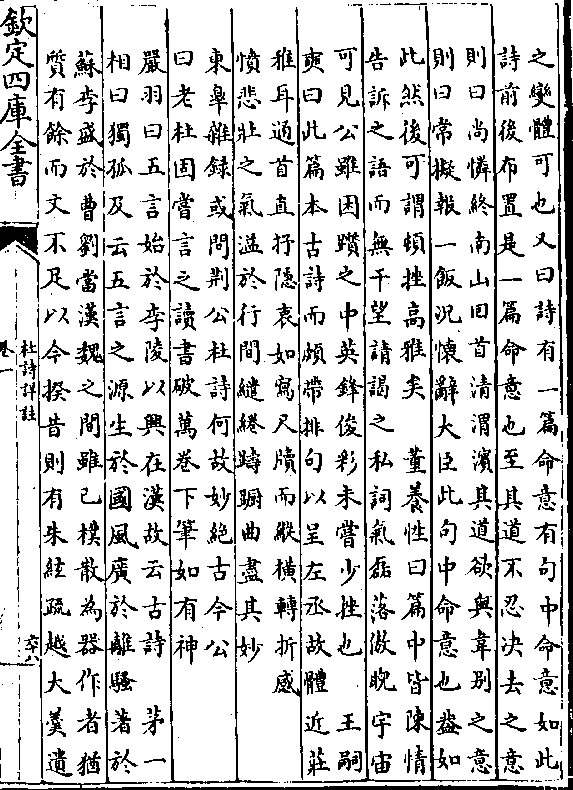 之變體可也又曰詩有一篇命意有句中命意如此
詩前後布置是一篇命意也至其道不忍決去之意
則曰尚憐終南山回首清渭濱其道欲與韋别之意
則曰常擬報一飯況懷辭大臣此句中命意也蓋如
此然後可謂頓挫高雅矣　董養性曰篇中皆陳情
告訴之語而無干望請謁之私詞氣磊落傲睨宇宙
可見公雖困躓之中英鋒俊彩未嘗少挫也　王嗣
奭曰此篇本古詩而頗帶排句以呈左丞故體近莊
雅耳通首直抒隱衷如寫尺牘而縱橫轉折感
憤悲壯之氣溢於行間繾綣躊躕曲盡其妙
東臯雜録或問荆公杜詩何故妙絶古今公
曰老杜固嘗言之讀書破萬卷下筆如有神
嚴羽曰五言始於李陵以興在漢故云古詩　茅一
相曰獨孤及云五言之源生於國風廣於離騷著於
蘇李盛於曹劉當漢魏之間雖已樸散為器作者猶
質有餘而文不足以今揆昔則有朱絃疏越大羹遺
欽定四庫全書
杜詩詳註
卷一
六十八